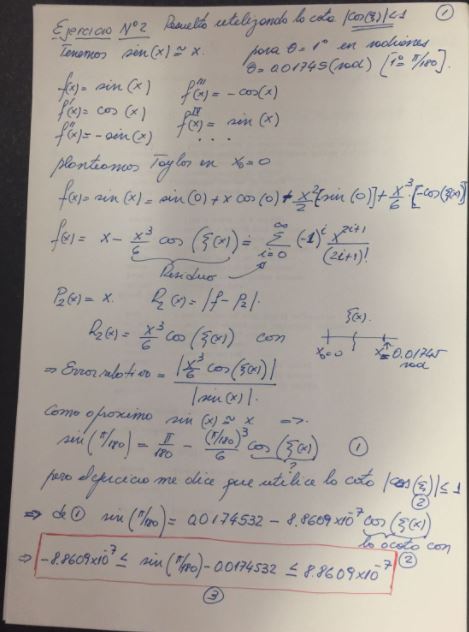 ①
Ejercicio Nº2 Resuelto utilizando la cota |cos(ξ)|≤1
Tenemos sin(x) ≅ x. para θ = 1º en radianes
θ = 0.01745 (rad) [1º = π/180]
f(x) = sin(x) f'''(x) = -cos(x)
f'(x) = cos(x) f^IV(x) = sin(x)
f''(x) = -sin(x) . . .
planteamos Taylor en x₀=0
f(x) = sin(x) = sin(0) + x cos(0) + x²/2 [sin(0)] + x³/6 · [-cos(ξ(x))]
f(x) = x - x³/6 cos(ξ(x)) = ∑_{i=0}^{∞} (-1)^i x^{2i+1}/(2i+1)!
Residuo
P₂(x) = x. R₂(x) = |f - P₂|.
R₂(x) = x³/6 cos(ξ(x)) con ξ(x).
x₀=0 x=0.01745 rad
⇒ Error relativo = |x³/6 cos(ξ(x))| / |sin(x)|.
como aproximo sin(x) ≅ x ⇒
sin(π/180) = π/180 - (π/180)³/6 cos(ξ(x)) ①
?
pero el ejercicio me dice que utilice la cota |cos(ξ)| ≤ 1
②
⇒ de ① sin(π/180) = 0.0174532 - 8.8609x10⁻⁷ cos(ξ(x))
lo acoto con
②
⇒ -8.8609x10⁻⁷ ≤ sin(π/180) - 0.0174532 ≤ 8.8609x10⁻⁷
③